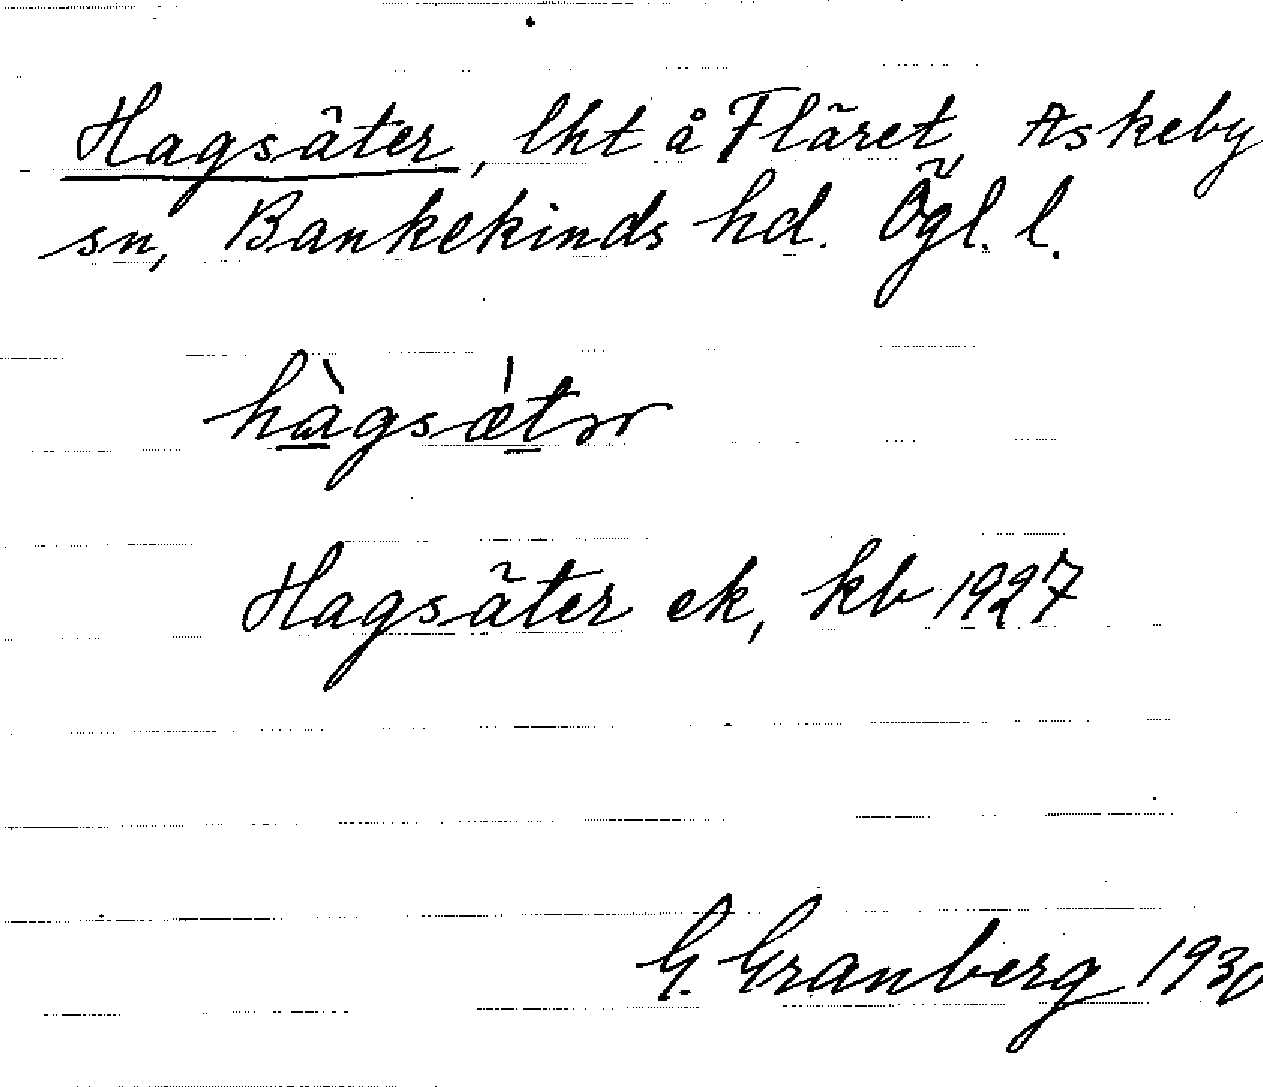 Hagsäter, lht å Fläret, Askeby
sn, Bankekinds hd. Ögl. l.
hàgsǽtər
Hagsäter ek, kb 1927
G. Granberg 1930